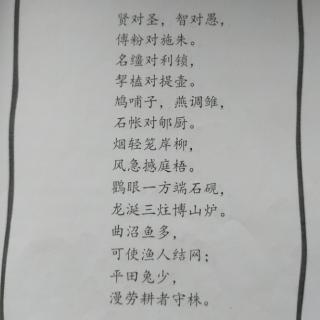 贤对圣，智对愚，
傅粉对施朱。
名缰对利锁，
挈榼对提壶。
鸠哺子，燕调雏，
石帐对郇厨。
烟轻笼岸柳，
风急撼庭梧。
鸜眼一方端石砚，
龙涎三炷博山炉。
曲沼鱼多，
可使渔人结网；
平田兔少，
漫劳耕者守株。